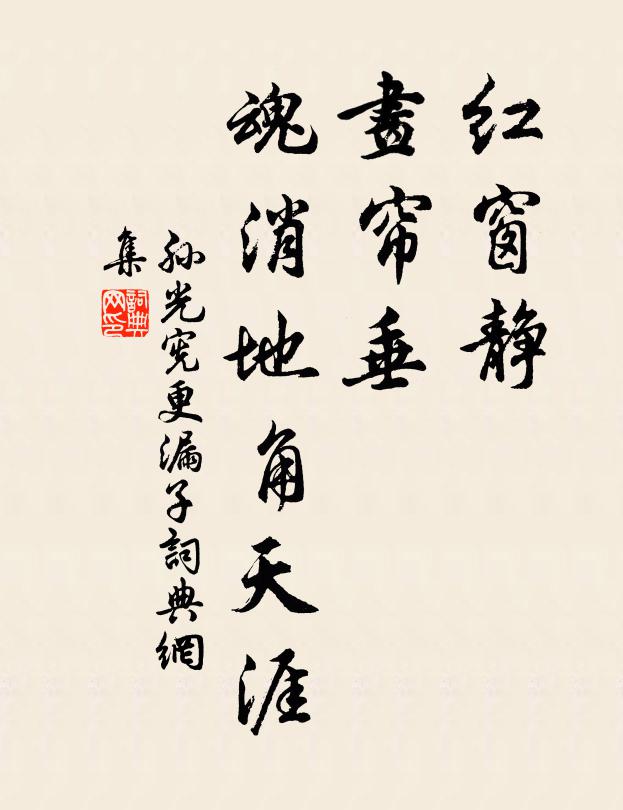 红窗静
畫帘垂
魂消地角天涯
孙光宪更漏子詞典網
集
詞典网印